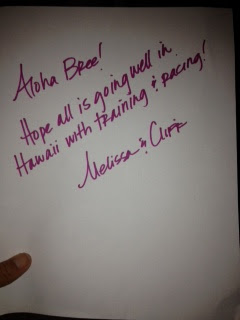 Aloha Bree!
Hope all is going well in
Hawaii with training & racing!
Melissa & Cliff